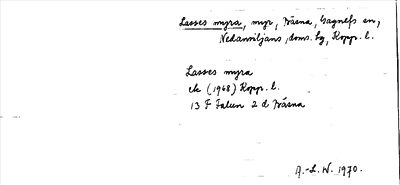 Lasses myra, myr, Tråsna, Gagnefs sn,
Nedansiljans doms. hg, Kopp. l.
Lasses myra
ek (1968) Kopp. l.
13 F Falun 2 d Tråsna
A.-L. W. 1970.